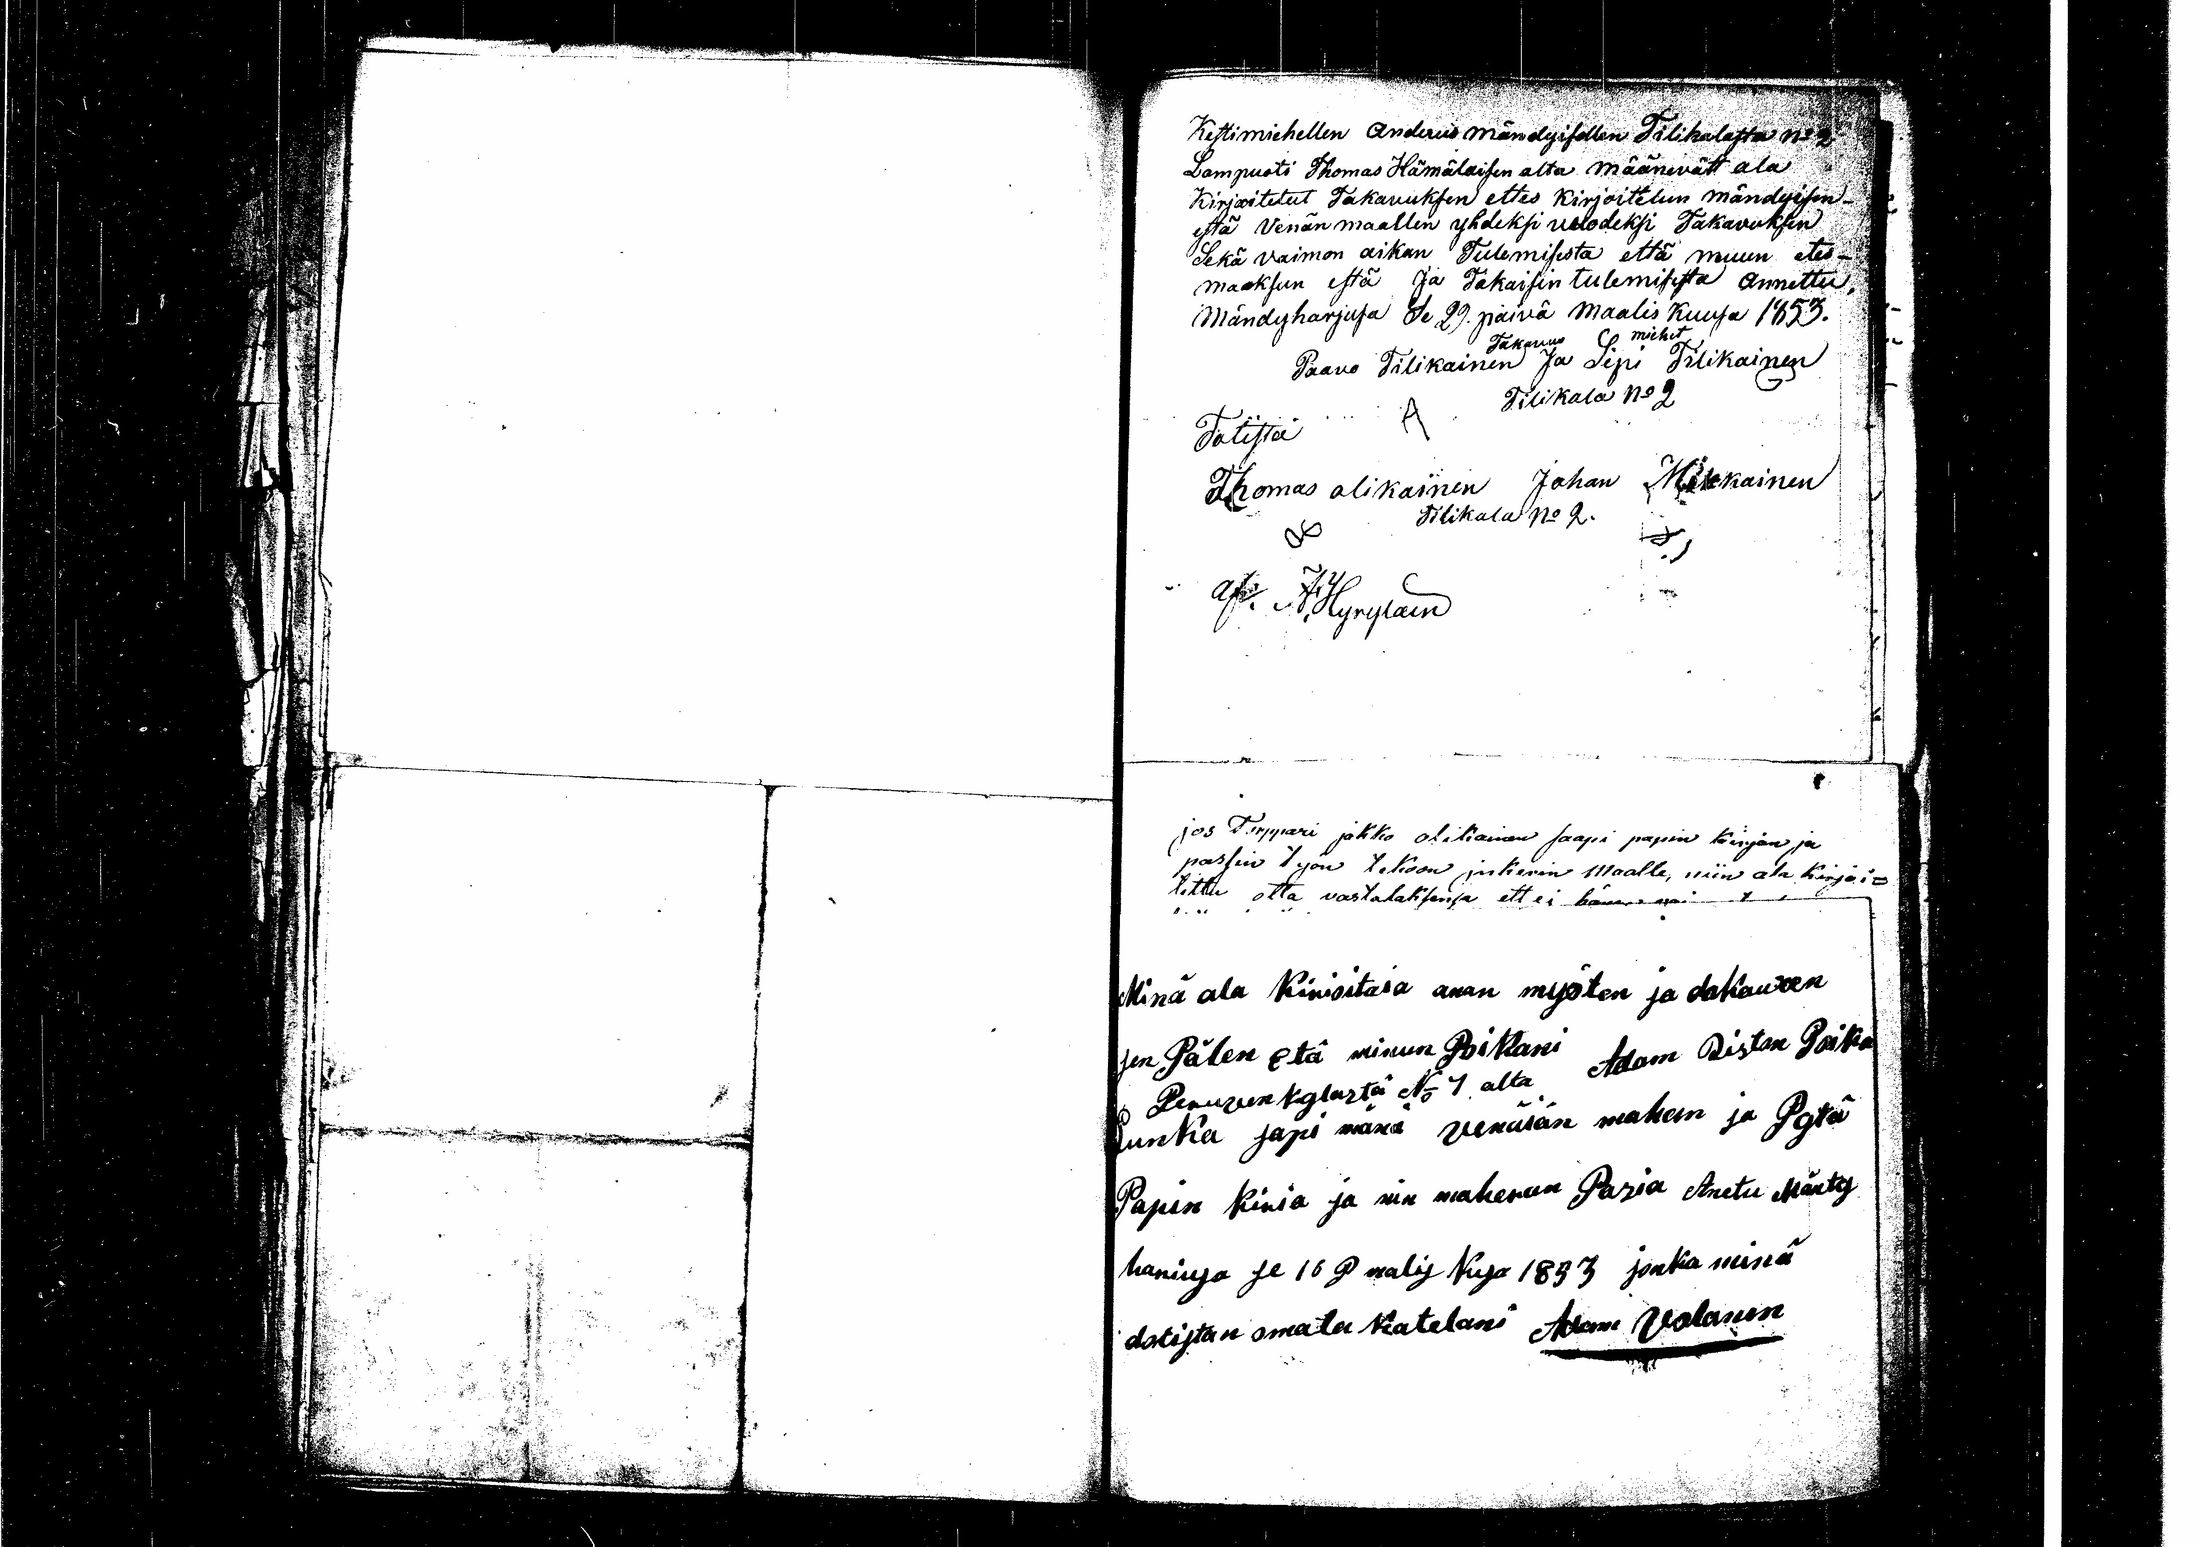 Kestimiehellen Anderus Mändyisellen Tilikalasta No 2
Lampuoti Thomas Hämäläisen alta määnevätt ala
Kirjoitetut Takavuksen ettes Kirjoitelun Mändyisen-
estä Venän maallen yhdeksi vuodeksi Takavuksen
Sekä vaimon aikan Tulemisesta että muun etes-
maaksun estä Ja Takaisin tulemisesta Annettu,
Mändyharjusa Se 29. päivä Maalis Kuusa 1853.
Takavus miehet
Paavo Tilikainen Ja Sipi Tilikainen
Tilikala No 2
Totista A
Thomas Olikainen Johan Mikkainen
Tilikala No 2.
Hyryläin
jos Torppari jakko olikainen saapi papin kirjan ja
passin työn tekoon inkerin Maalle, niin ala Kirjoi=
tettu otta vastataksensa ett ei
Minä ala Kirioitaia anan myöten ja dakauxen
sen Pälen etä minun Poikani Adam Ristan Poika
Peruven kylästä No 7 alta
Lunka sapi mänä venäiän mahen ja Pytä
Papin Kiria ja nin mahenun Pasia Anetu Mänty
hariusa se 16 P malis Kusa 1853 jonka minä
dotistan omala Katelani Adam Volanen